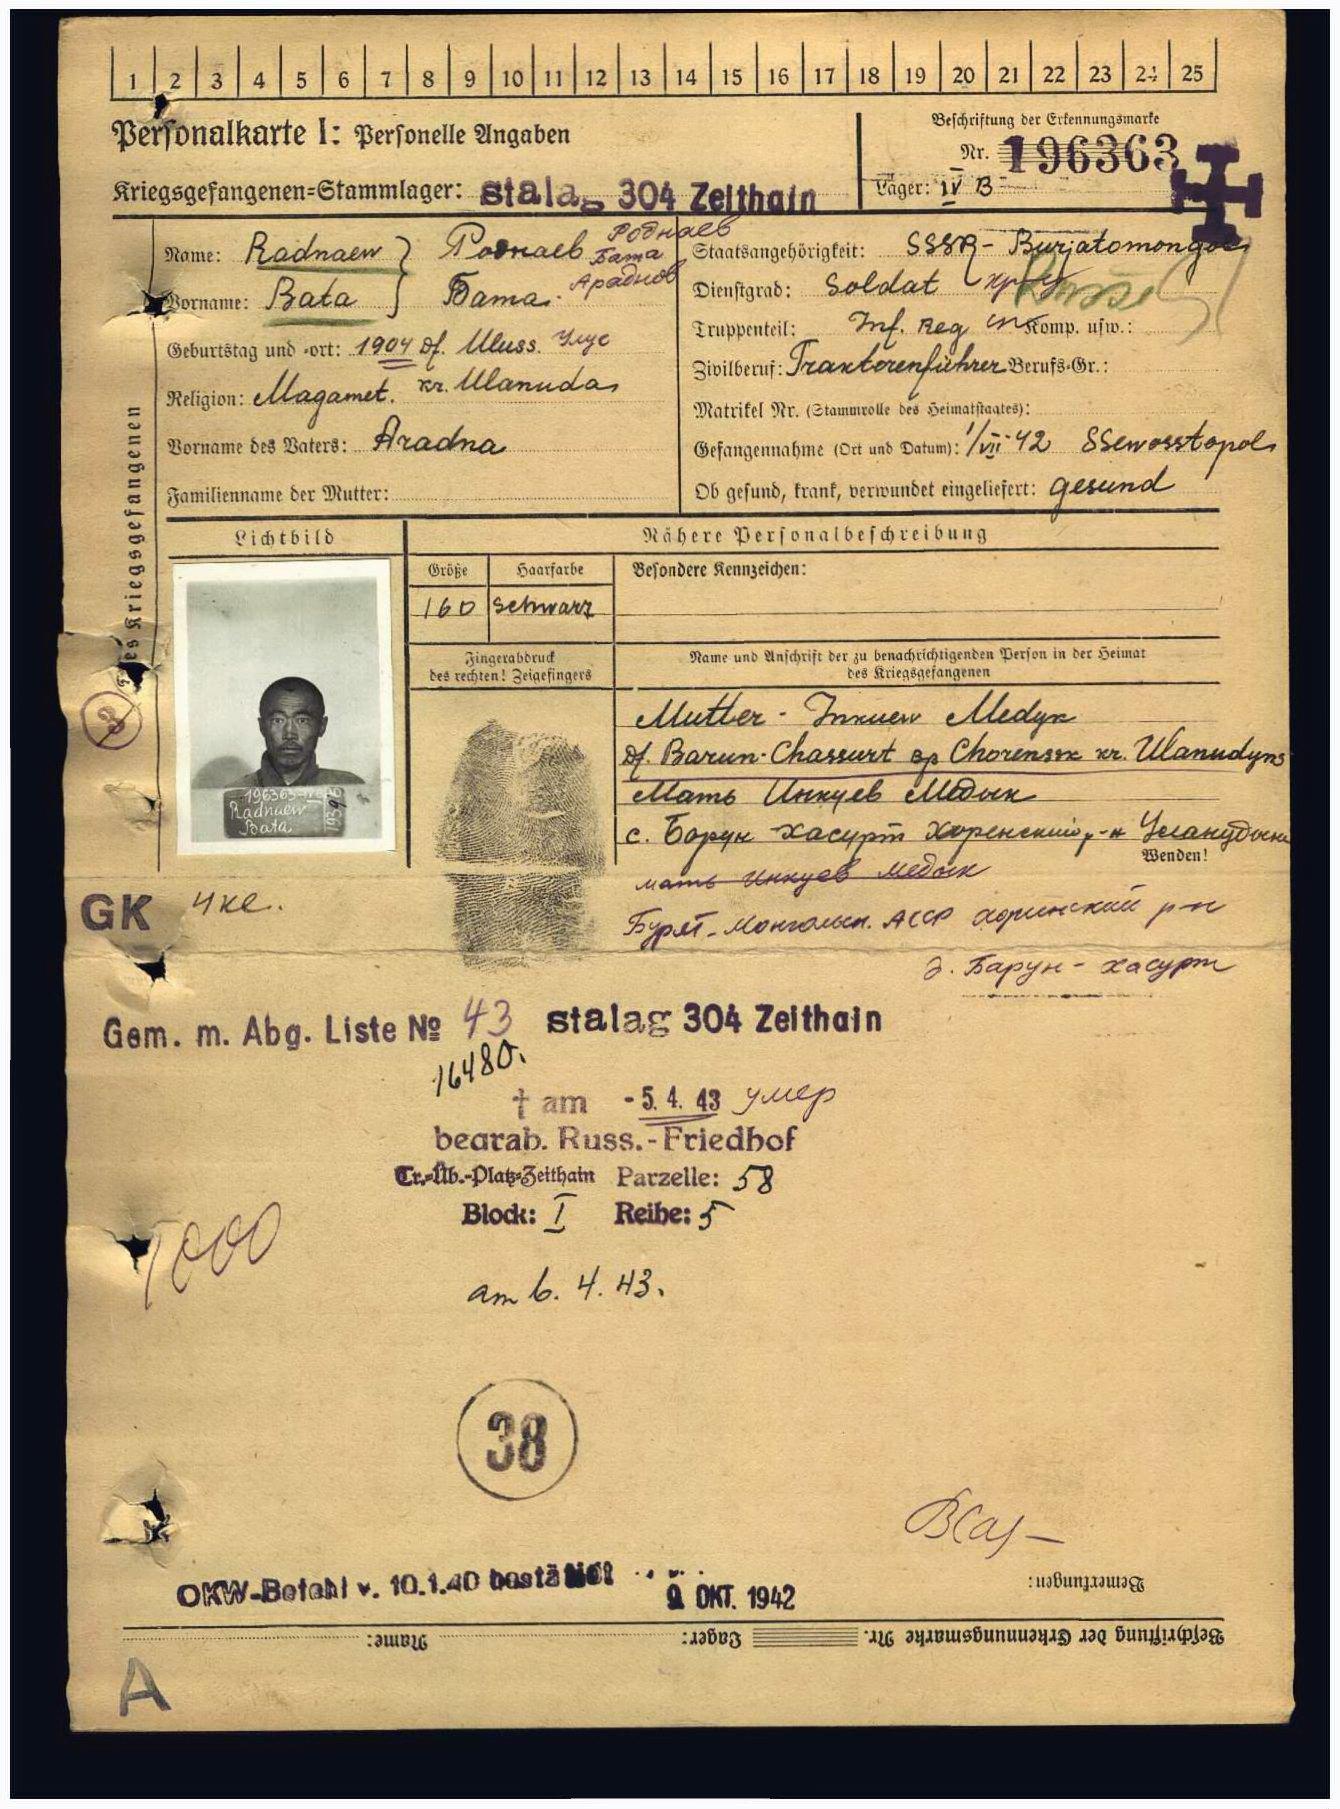 1 2 3 4 5 6 7 8 9 10 11 12 13 14 15 16 17 18 19 20 21 22 23 24 25
Personalkarte I: Personelle Angaben
Beschriftung der Erkennungsmarke
Nr. 196363
Kriegsgefangenen-Stammlager: Stalag 304 Zeithain
Lager: IV B
des Kriegsgefangenen
Name: Radnaew Роднаев Роднаев
Vorname: Bata Бата Бата Араднов
Geburtstag und -ort: 1904 Df. Uluss. Улус
Religion: Magamet. kr. Ulanuda
Vorname des Vaters: Aradna
Familienname der Mutter:
Staatsangehörigkeit: SSSR - Burjatomongol
Dienstgrad: Soldat
Truppenteil: Inf. Reg Komp. usw.:
Zivilberuf: Traktorenführer Berufs-Gr.:
Matrikel Nr. (Stammrolle des Heimatstaates):
Gefangennahme (Ort und Datum): 1/VII-42 SSewosstopol
Ob gesund, krank, verwundet eingeliefert: gesund
Lichtbild
Nähere Personalbeschreibung
Größe Haarfarbe Besondere Kennzeichen:
160 schwarz
Fingerabdruck
des rechten! Zeigefingers
Name und Anschrift der zu benachrichtigenden Person in der Heimat
des Kriegsgefangenen
196363
Radnaew
Bata
Mutter - Inkuew Medyk
Df. Barun-Chassurt Chorensk kr. Ulanudyns
Мать Инкуев Медык
с. Борун-хасурт Хоренский р-н Уланудынс
Wenden!
мать Инкуев Медык
Бурят-Монгольск. АССР Хоринский р-н
д. Барун-хасурт
GK
Gem. m. Abg. Liste № 43 Stalag 304 Zeithain
16480.
† am - 5. 4. 43 умер
begrab. Russ.-Friedhof
Tr.-Üb.-Platz-Zeithain Parzelle: 58
Block: I Reihe: 5
am 6. 4. 43.
38
OKW-Befehl v. 10.1.40 bestätigt
9. OKT. 1942
Bemerkungen:
Beschriftung der Erkennungsmarke Nr. Lager: Name:
A